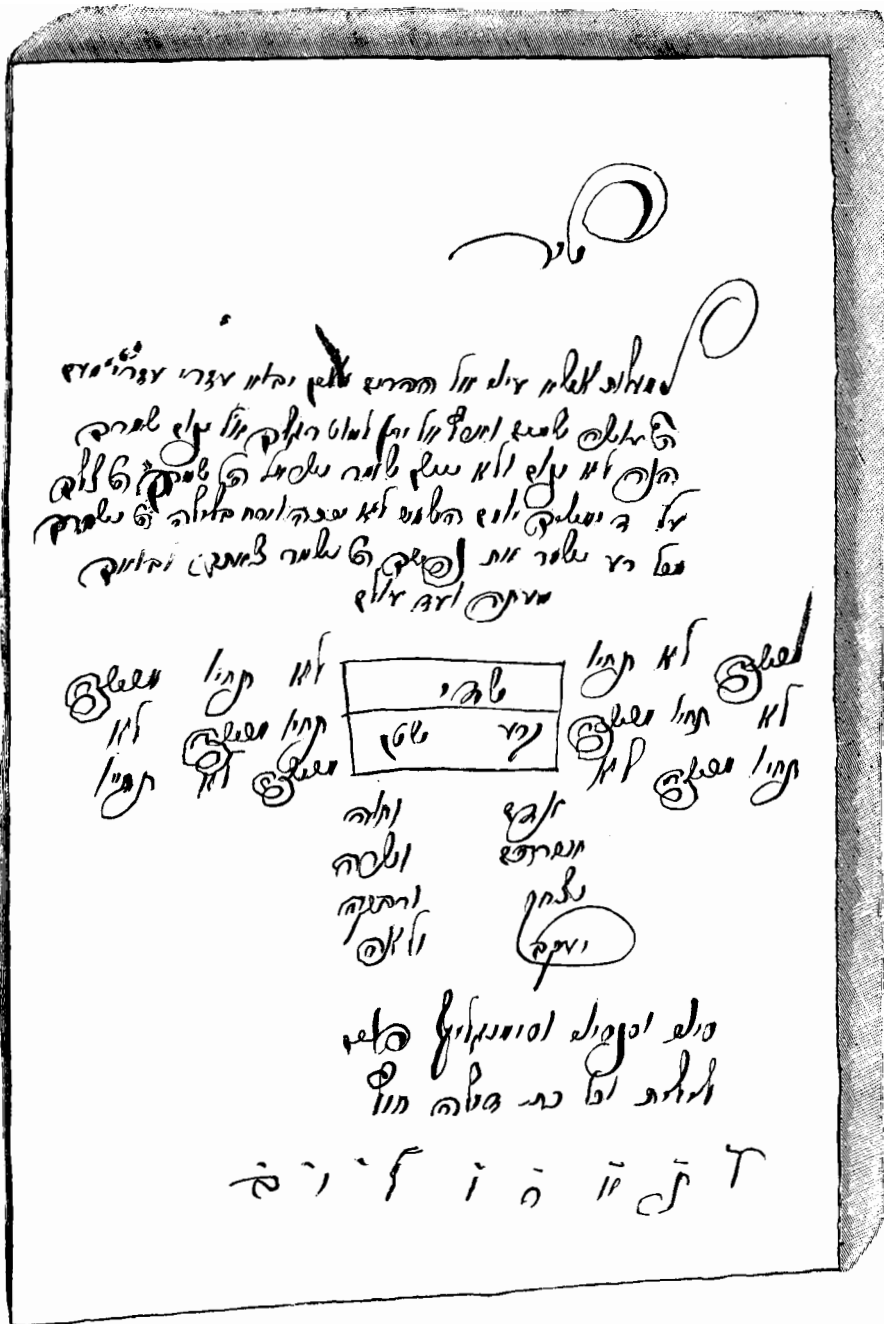 שיר
למעלות אשא עיני אל ההרים מאין יבוא עזרי עזרי מעם
ה' עושה שמים וארץ אל יתן למוט רגלך אל ינום שמרך
הנה לא ינום ולא יישן שומר ישראל ה' שמרך ה' צלך
על יד ימינך יומם השמש לא יככה וירח בלילה ה' ישמרך
מכל רע ישמר את נפשך ה' ישמר צאתך ובואך
מעתה ועד עולם
מכשפה לא תחיה שדי לא תחיה מכשפה
לא תחיה מכשפה קרע שטן תחיה מכשפה לא
תחיה מכשפה לא מכשפה לא תחיה
אדם וחוה
אברהם ושרה
יצחק ורבקה
יעקב ולאה
וסנסיני וסימנגליף
לילית וכל כת דילה חוץ